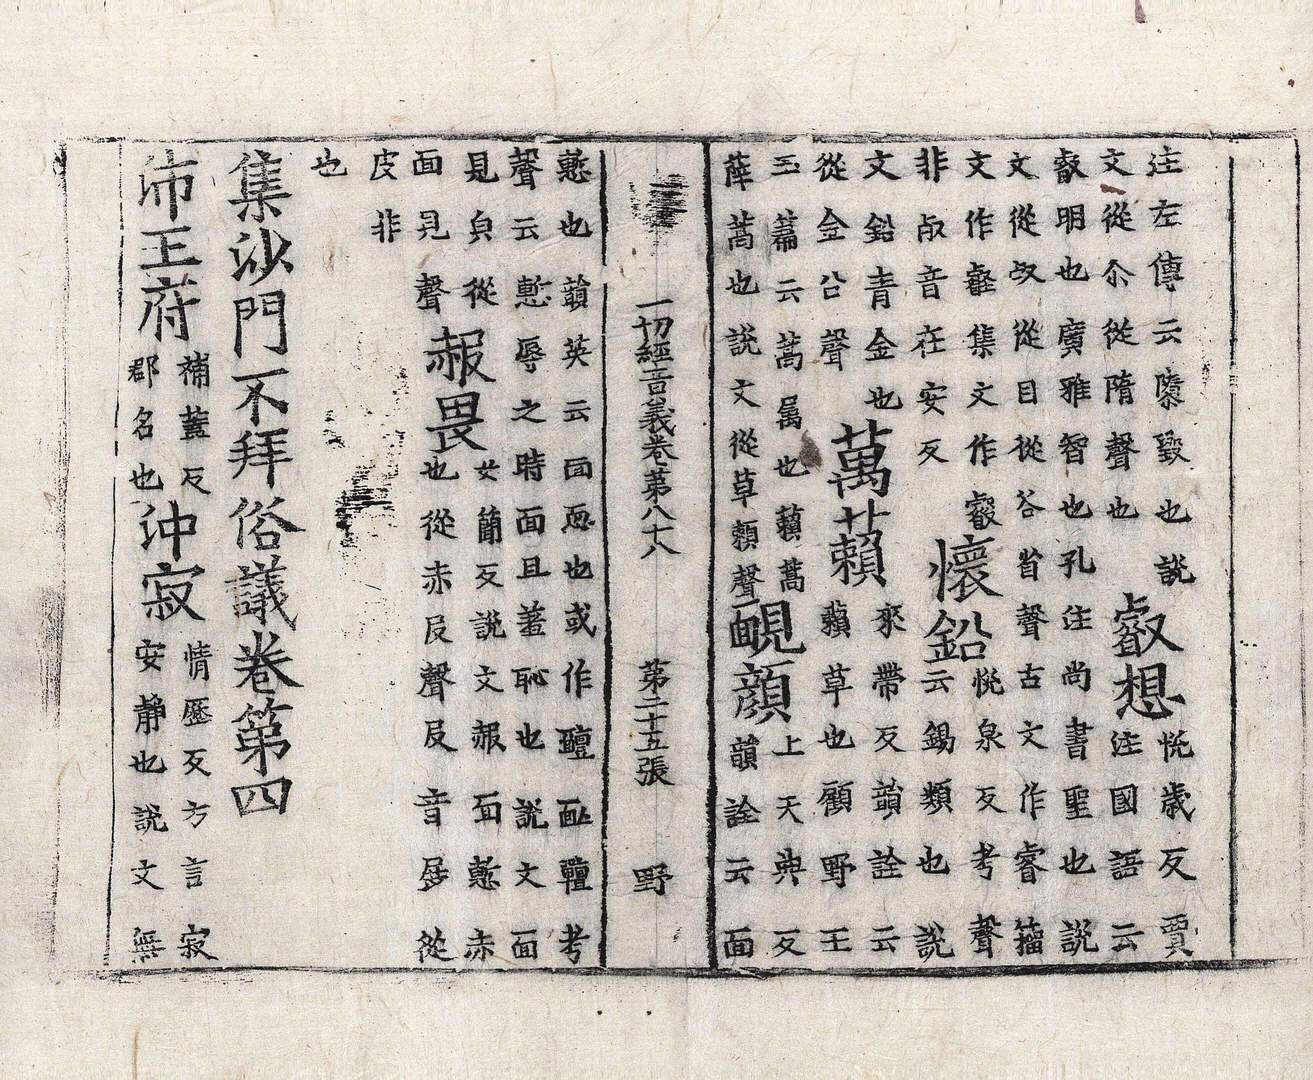 注左傳云隳毀也說
文從尒從隋聲也
叡想
悅歲反賈
注國語云
叡明也廣雅智也孔注尚書聖也說
文從㕡從目從谷省聲古文作睿籀
文作壡集文作叡
非㕡音在安反
懷鉛
悅泉反考聲
云錫類也說
文鉛青金也
從金公聲
萬藾
來帶反韻詮云
藾草也顧野王
玉篇云蒿屬也藾蒿
薛蒿也說文從草頼聲
靦顔
上天典反
韻詮云面
一切經音義卷第八十八 第二十五張 野
慙也韻英云面恧也或作考
聲云慙辱之時面且羞恥也說文面
見皃從
面見聲
赧畏
女簡反說文赧面慙赤
也從赤㞋聲㞋音展從
皮非
也
集沙門不拜俗議卷第四
沛王府
補蓋反
郡名也
沖寂
情歷反方言寂
安靜也說文無